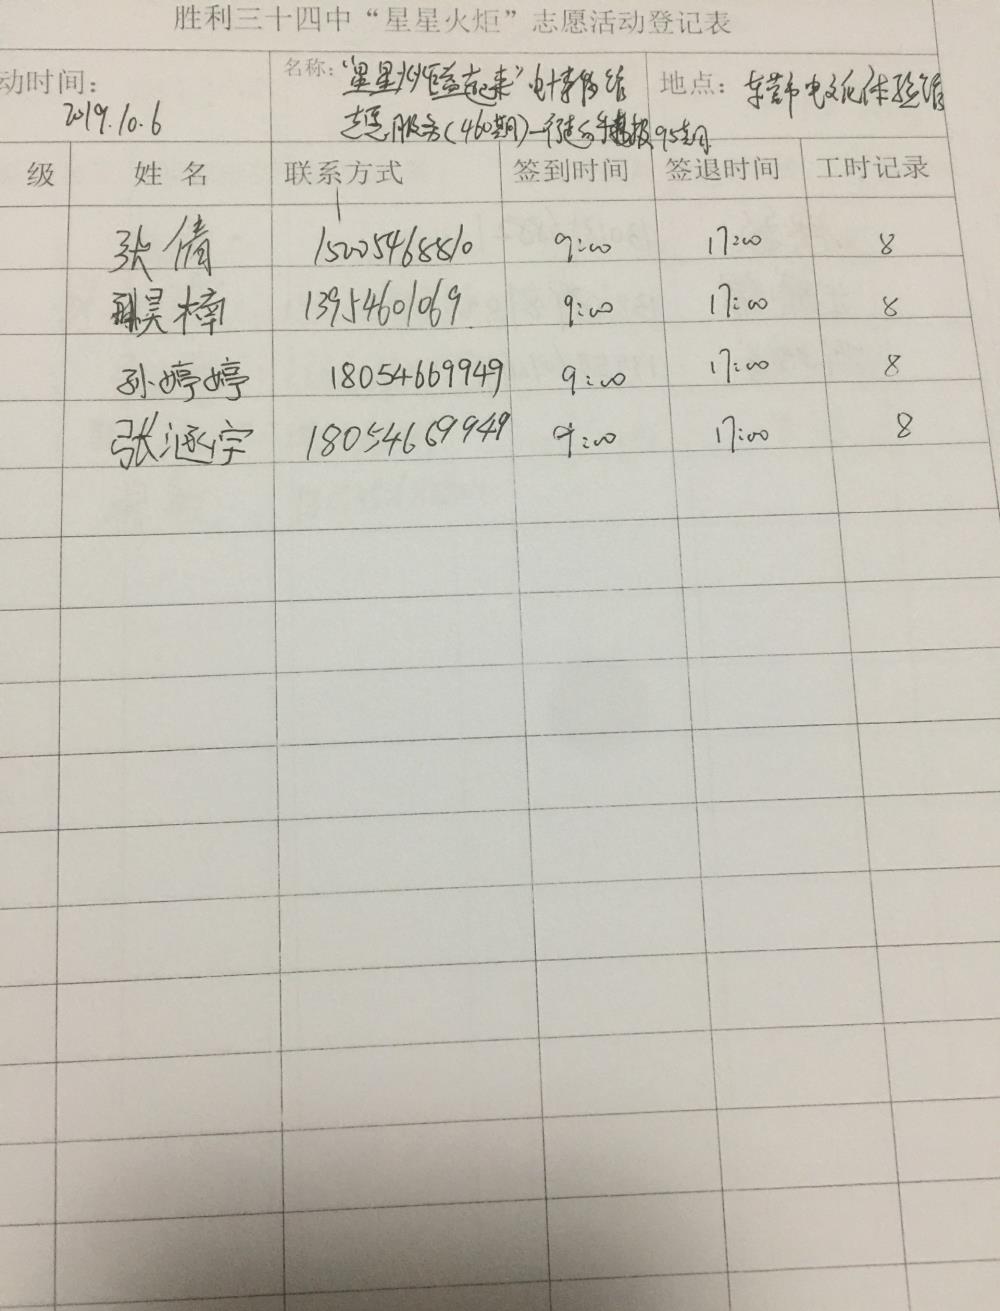 胜利三十四中“星星火炬”志愿活动登记表
动时间：
2019.10.6
名称：“星星火炬益起来”电博物馆
志愿服务（460期）—行走的手抄报95期
地点：东营市电文化体验馆
级 姓 名 联系方式 签到时间 签退时间 工时记录
张倩 15005468810 9:00 17:00 8
昊楠 13954601069 9:00 17:00 8
孙婷婷 18054669949 9:00 17:00 8
张涵宇 18054669949 9:00 17:00 8